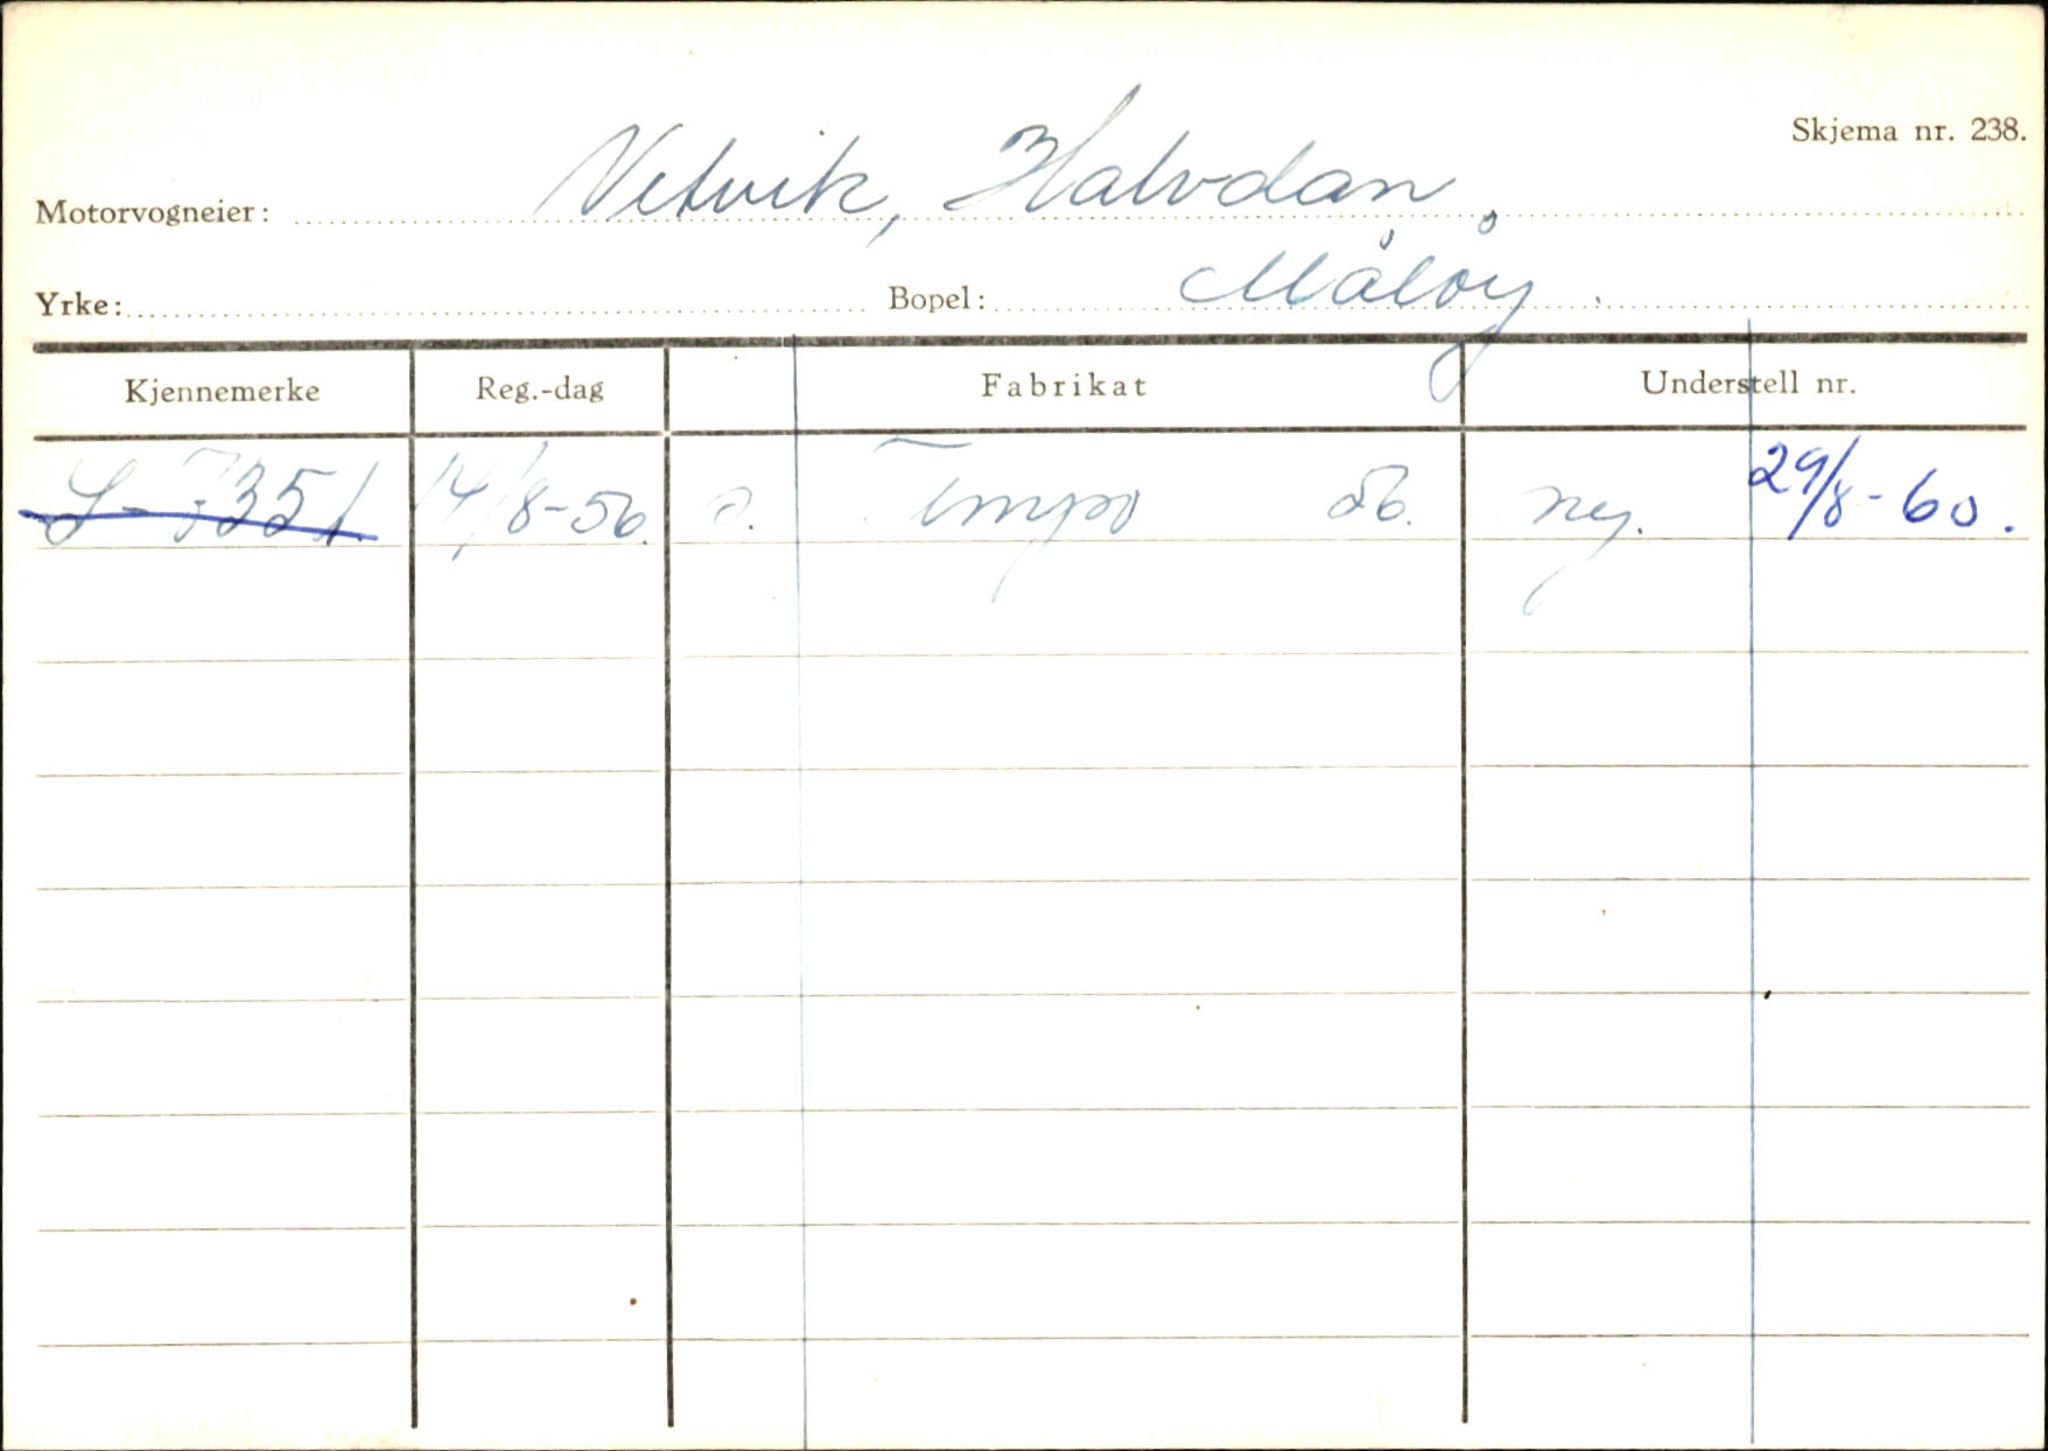 Skjema nr. 238.
Motorvogneier: Vetvik, Halvdan.
Yrke: Bopel: Måløy.
Kjennemerke Reg.-dag Fabrikat Understell nr.
S-7351 14/8-56. o. Tempo 56. ny. 29/8-60.